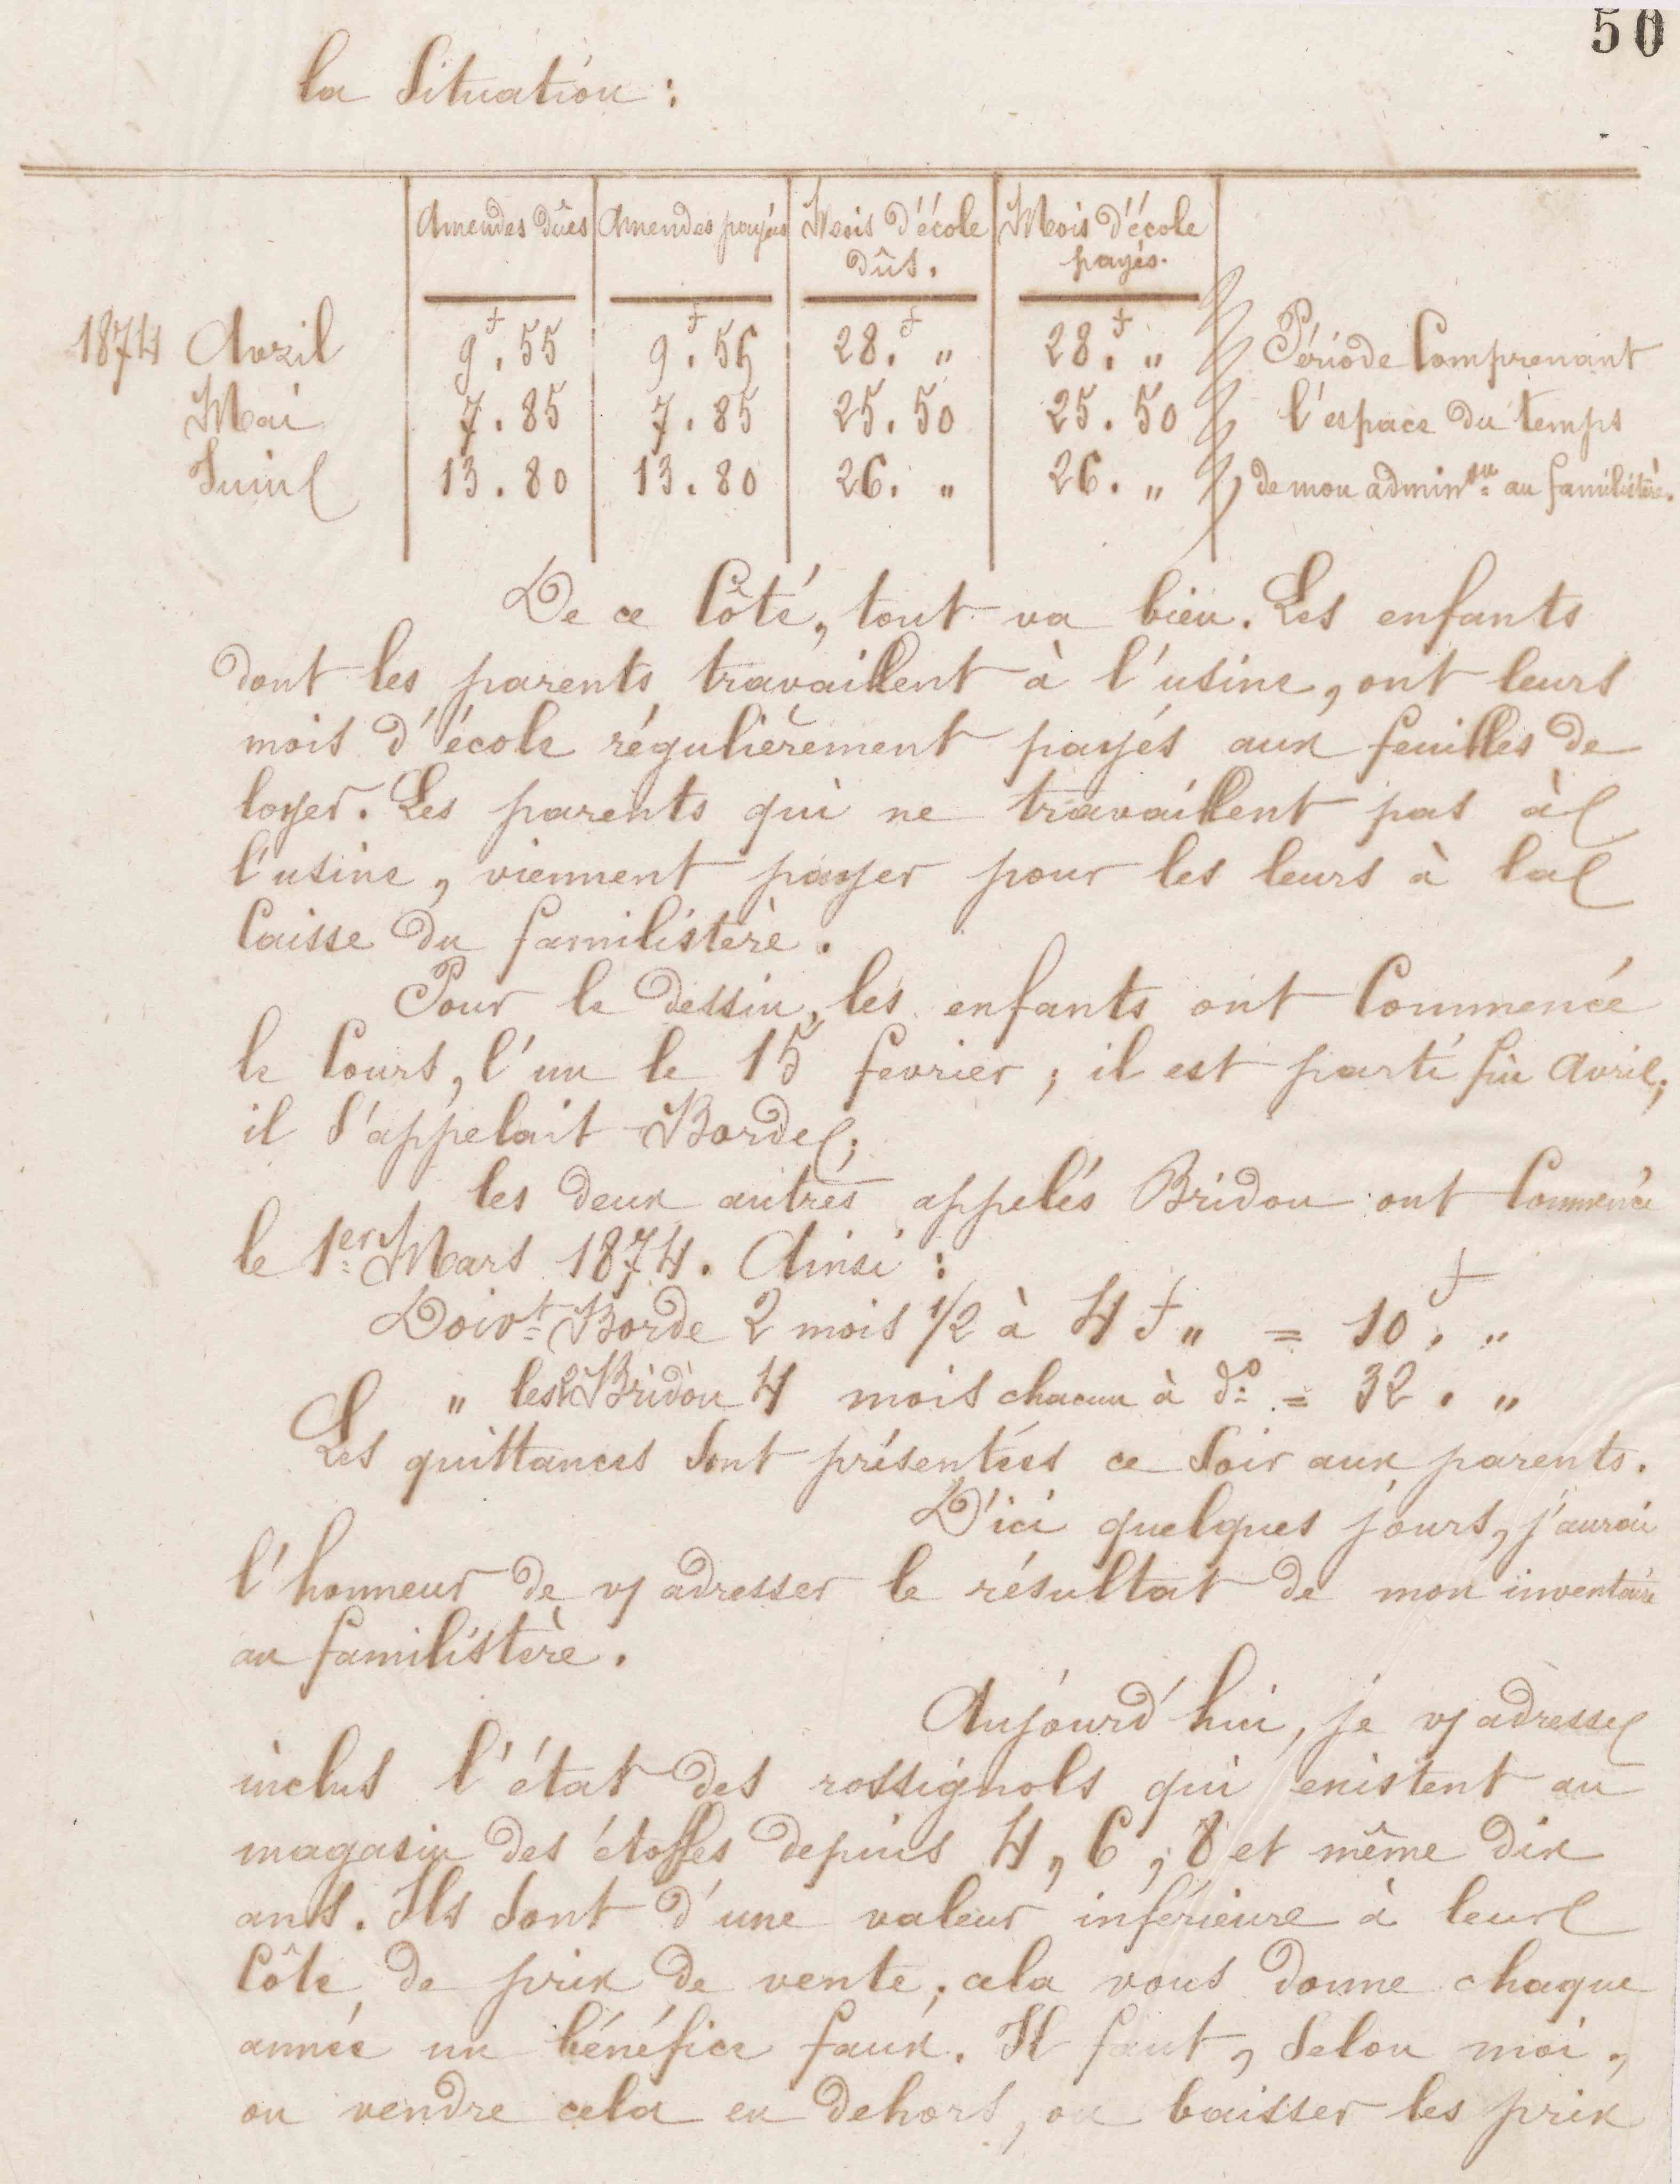 50
la Situation :
Amendes dûes Amendes payées Mois d'école dûs. Mois d'école payés.
1874 Avril 9f.55 9f.55 28f. " 28f. " Période Comprenant
Mai 7.85 7.85 25.50 25.50 l'espace du temps
Juin 13.80 13.80 26. " 26. " de mon adminon au familistère.
De ce Côté, tout va bien. Les enfants
dont les parents travaillent à l'usine, ont leurs
mois d'école régulièrement payés aux feuilles de
loyer. Les parents qui ne travaillent pas à
l'usine, viennent payer pour les leurs à la
Caisse du familistère.
Pour le dessin, les enfants ont Commencé
le Cours, l'un le 15 fevrier ; il est parti fin Avril;
il s'appelait Borde;
les deux autres appelés Bridou ont Commencé
le 1er Mars 1874. Ainsi :
Doivt Borde 2 mois 1/2 à 4 f " = 10f. "
" les 2 Bridou 4 mois chacun à do = 32. "
Les quittances sont présentées ce soir aux parents.
D'ici quelques jours, j'aurai
l'honneur de v/ adresser le résultat de mon inventaire
au familistère.
Aujourd'hui, je v/ adresse
inclus l'état des rossignols qui existent au
magasin des étoffes depuis 4, 6, 8 et même dix
ans. Ils sont d'une valeur inférieure à leur
Côte de prix de vente; cela vous donne chaque
année un bénéfice faux. Il faut, selon moi,
ou vendre cela en dehors, ou baisser les prix